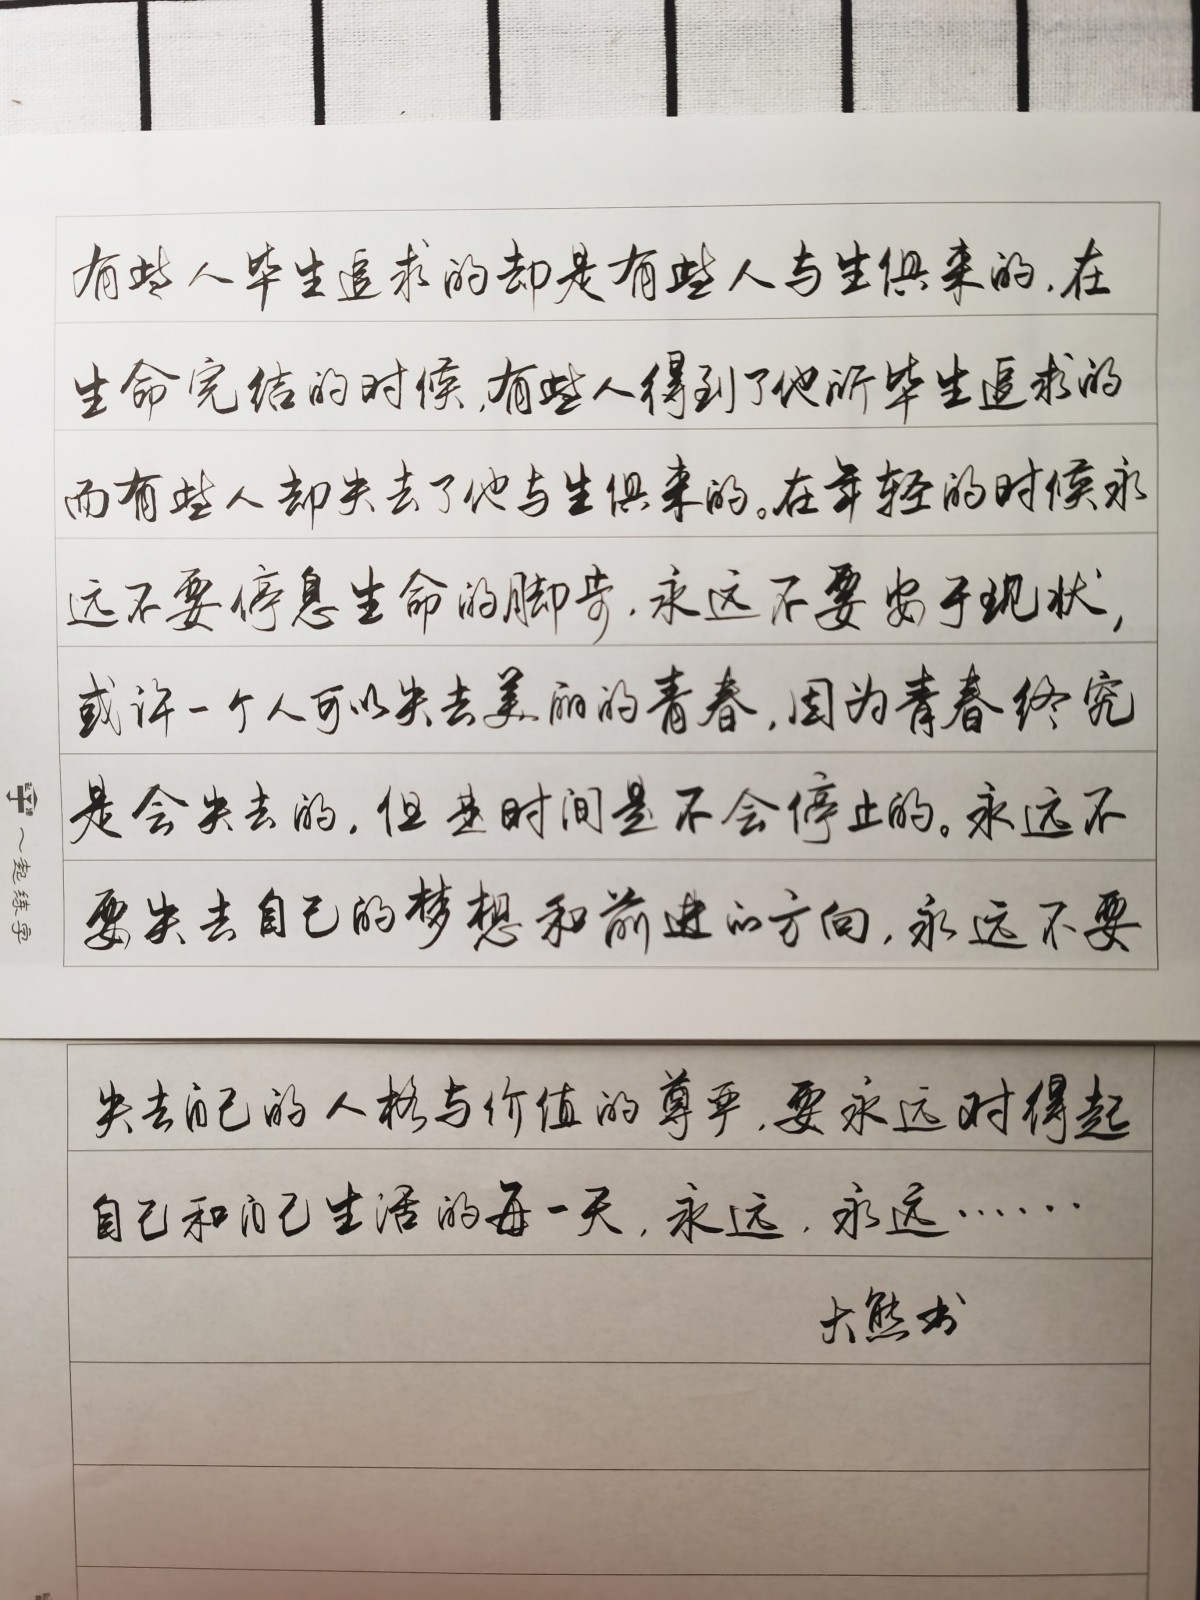 有些人毕生追求的却是有些人与生俱来的.在
生命完结的时候,有些人得到了他所毕生追求的
而有些人却失去了他与生俱来的。在年轻的时候永
远不要停息生命的脚步.永远不要安于现状,
或许一个人可以失去美丽的青春,因为青春终究
是会失去的,但是时间是不会停止的。永远不
要失去自己的梦想和前进的方向,永远不要
失去自己的人格与价值的尊严.要永远对得起
自己和自己生活的每一天,永远,永远……
大熊书
一起练字